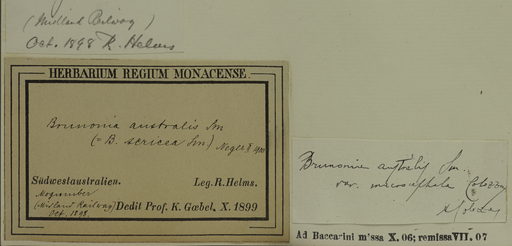 (Midland Railway)
Oct. 1898 R. Helms
HERBARIUM REGIUM MONACENSE.
Brunonia australis Sm
(= B. sericea Sm)
Südwestaustralien. Leg. R. Helms.
(Midland Railway) Dedit Prof. K. Gœbel. X. 1899
Oct. 1898.
Brunonia australis Sm.
var. microcephala
Ad Baccarini missa X. 06; remissa VII. 07